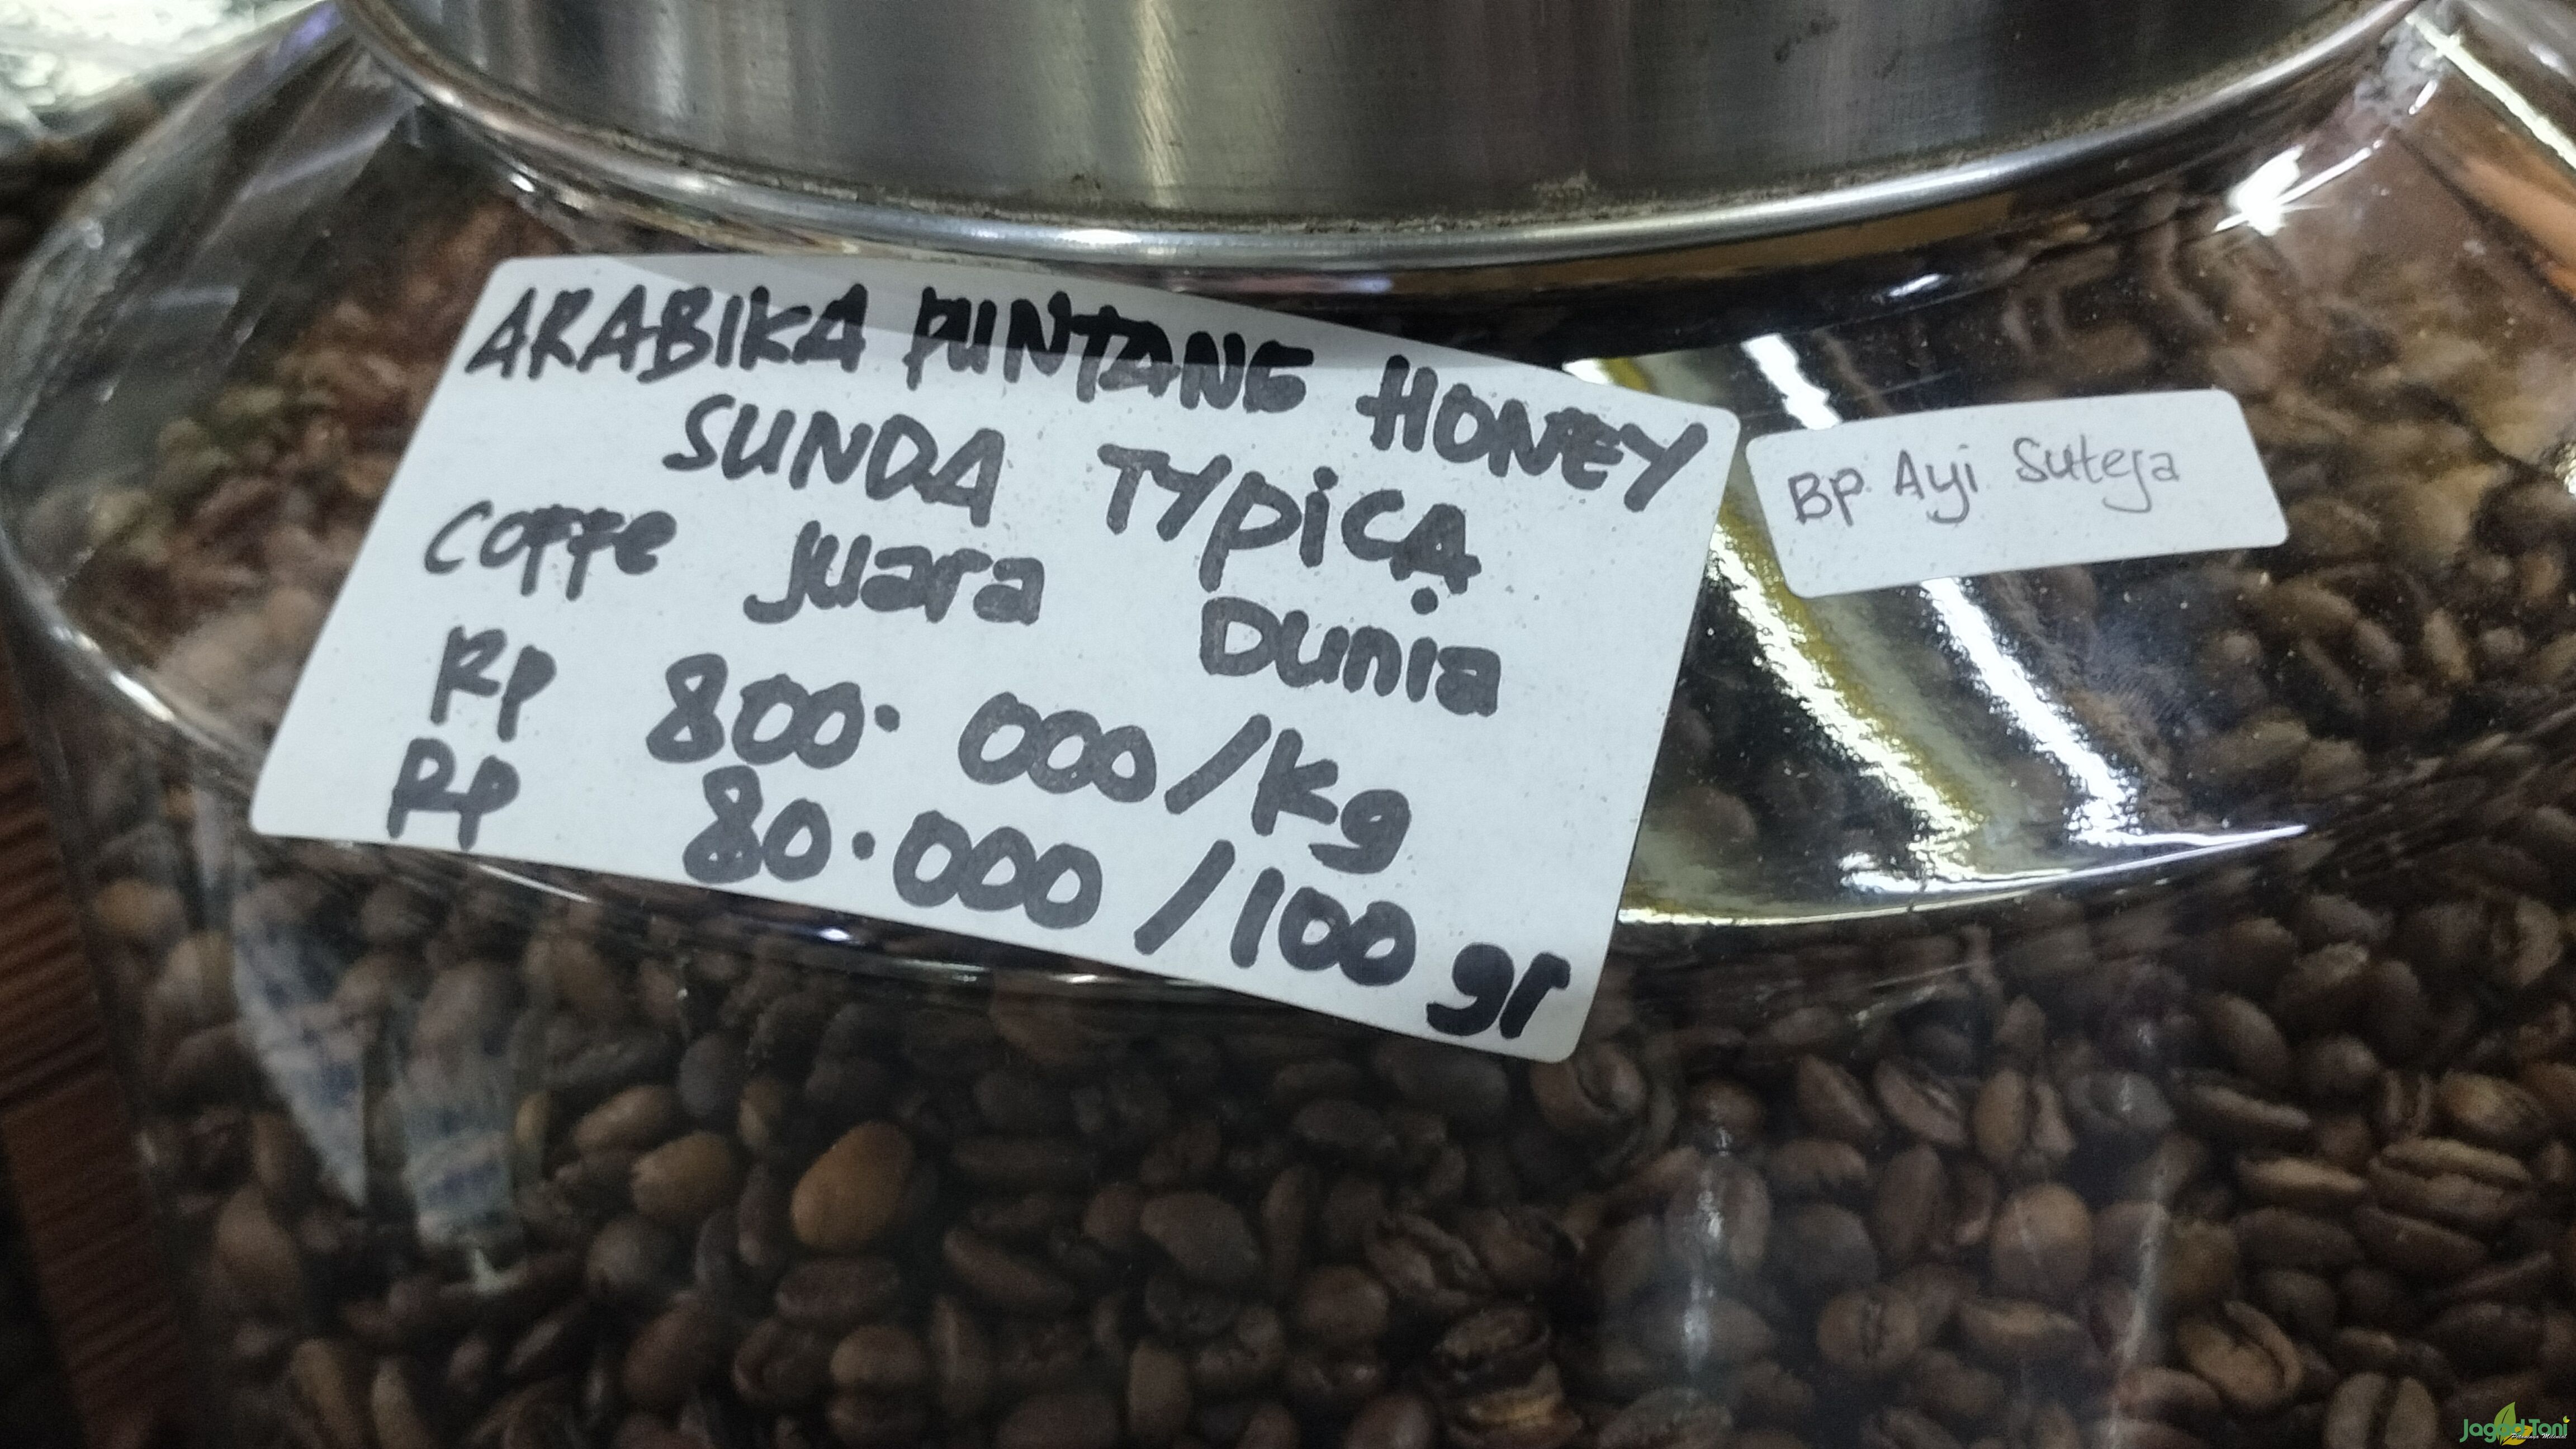 ARABIKA PUNTANG HONEY
SUNDA TYPiCA
Coffe juara Dunia
Rp 800.000/kg
Rp 80.000/100 gr
BP. Ayi Suteja
Jagad Tani